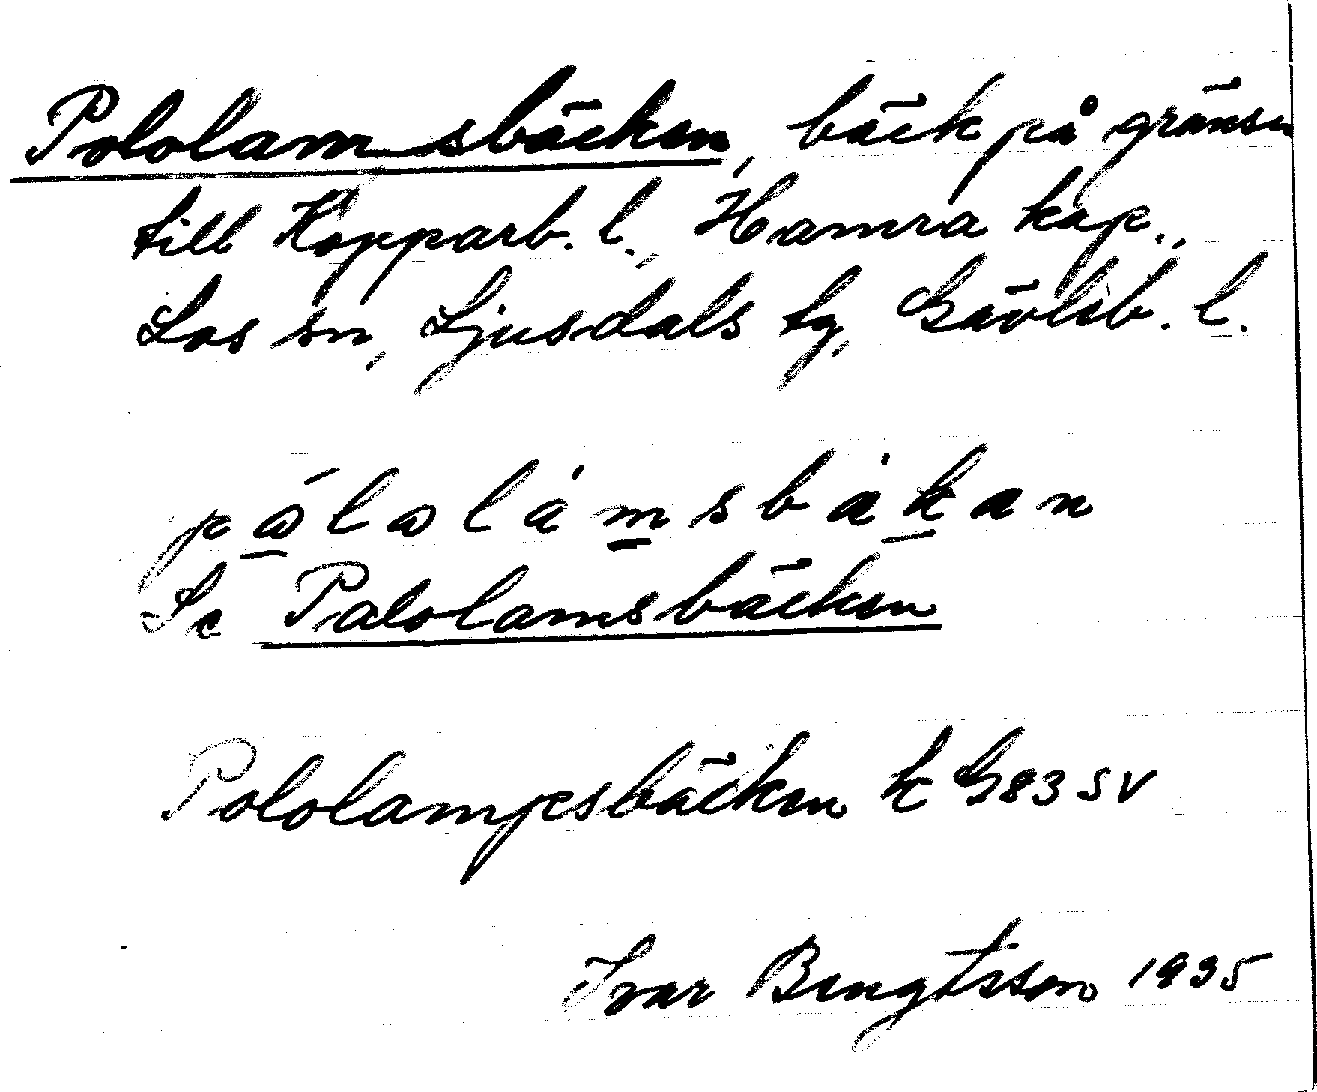 Pololamsbäcken, bäck på gränsen
till Kopparb. l., Hamra kap.,
Los sn, Ljusdals tg, Gävleb. l.
Se Palolamsbäcken
Pololampesbäcken k G83 SV
Ivar Bengtsson 1935